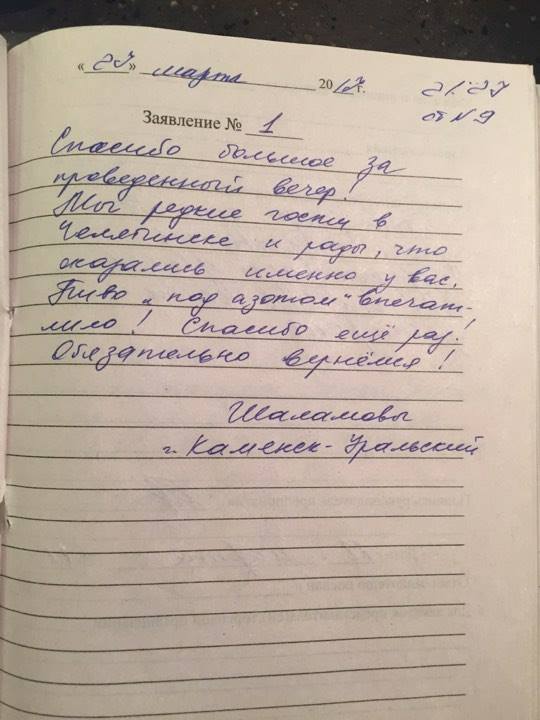 «27» марта 2017г. 21:27
ст N9
Заявление № 1
Спасибо большое за
проведенный вечер!
Мы редкие гости в
Челябинске и рады, что
оказались именно у вас.
Пиво „под азотом" впечат-
лило! Спасибо ещё раз!
Обязательно вернёмся!
Шаламовы
г. Каменск-Уральский